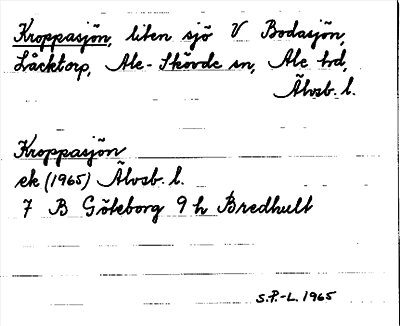 Kroppasjön, liten sjö V Bodasjön,
Låcktorp, Ale-Skövde sn, Ale hd,
Älvsb. l.
Kroppasjön
ek (1965) Älvsb. l.
7 B Göteborg 9 h Bredhult
S.P.-L. 1965